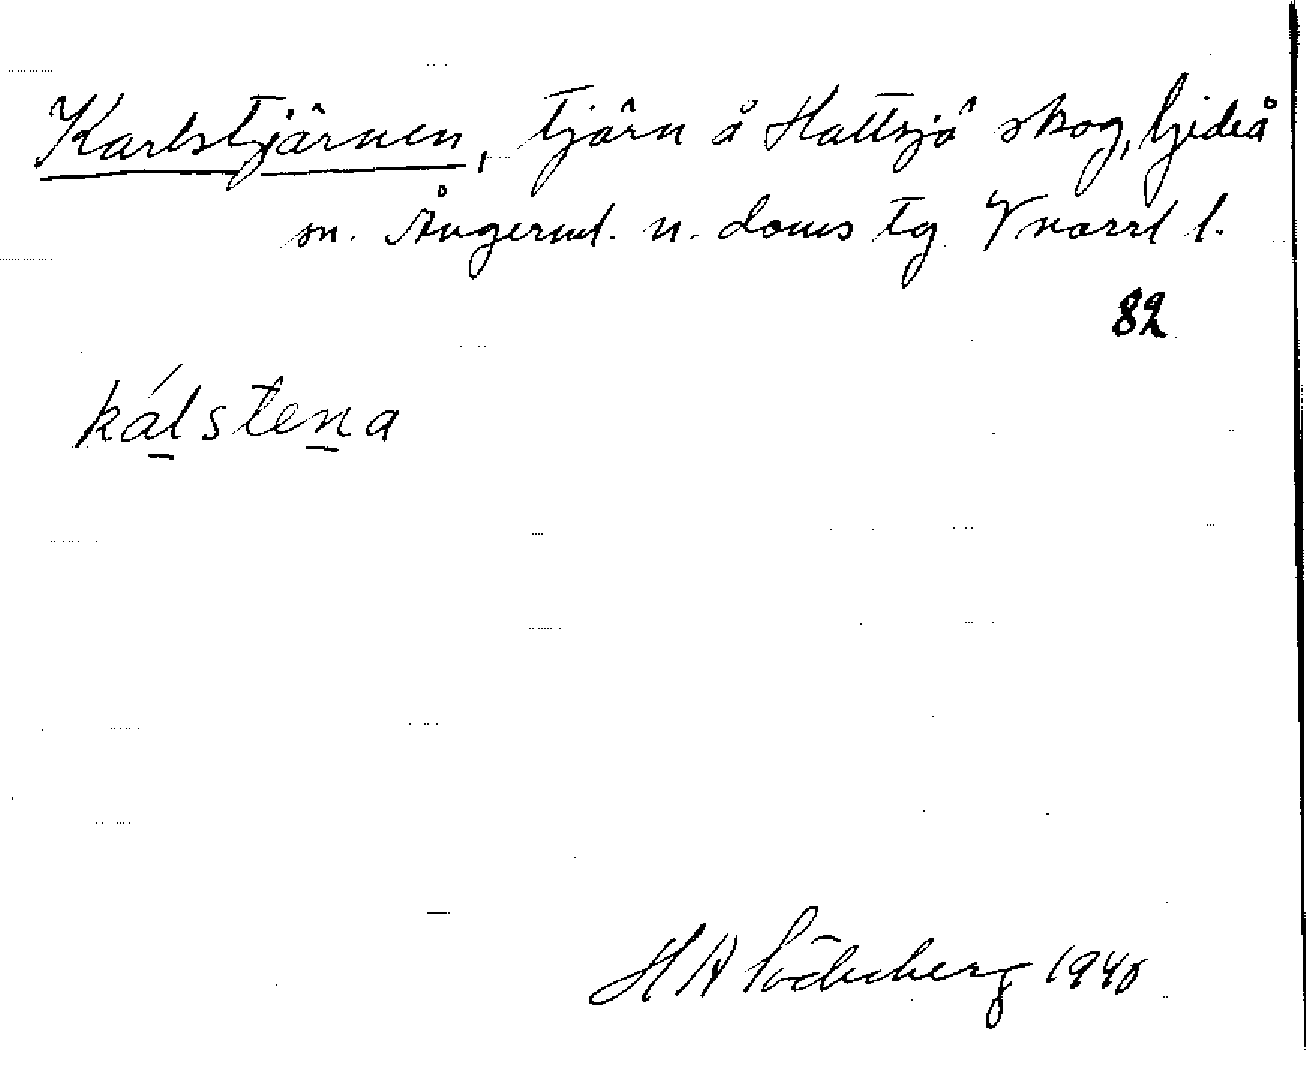 Karlstjärnen, tjärn å Hattsjö skog, Gideå
sn. Ångerml. n. doms tg Vnorrl l.
82
kálstena
H A Söderberg 1940